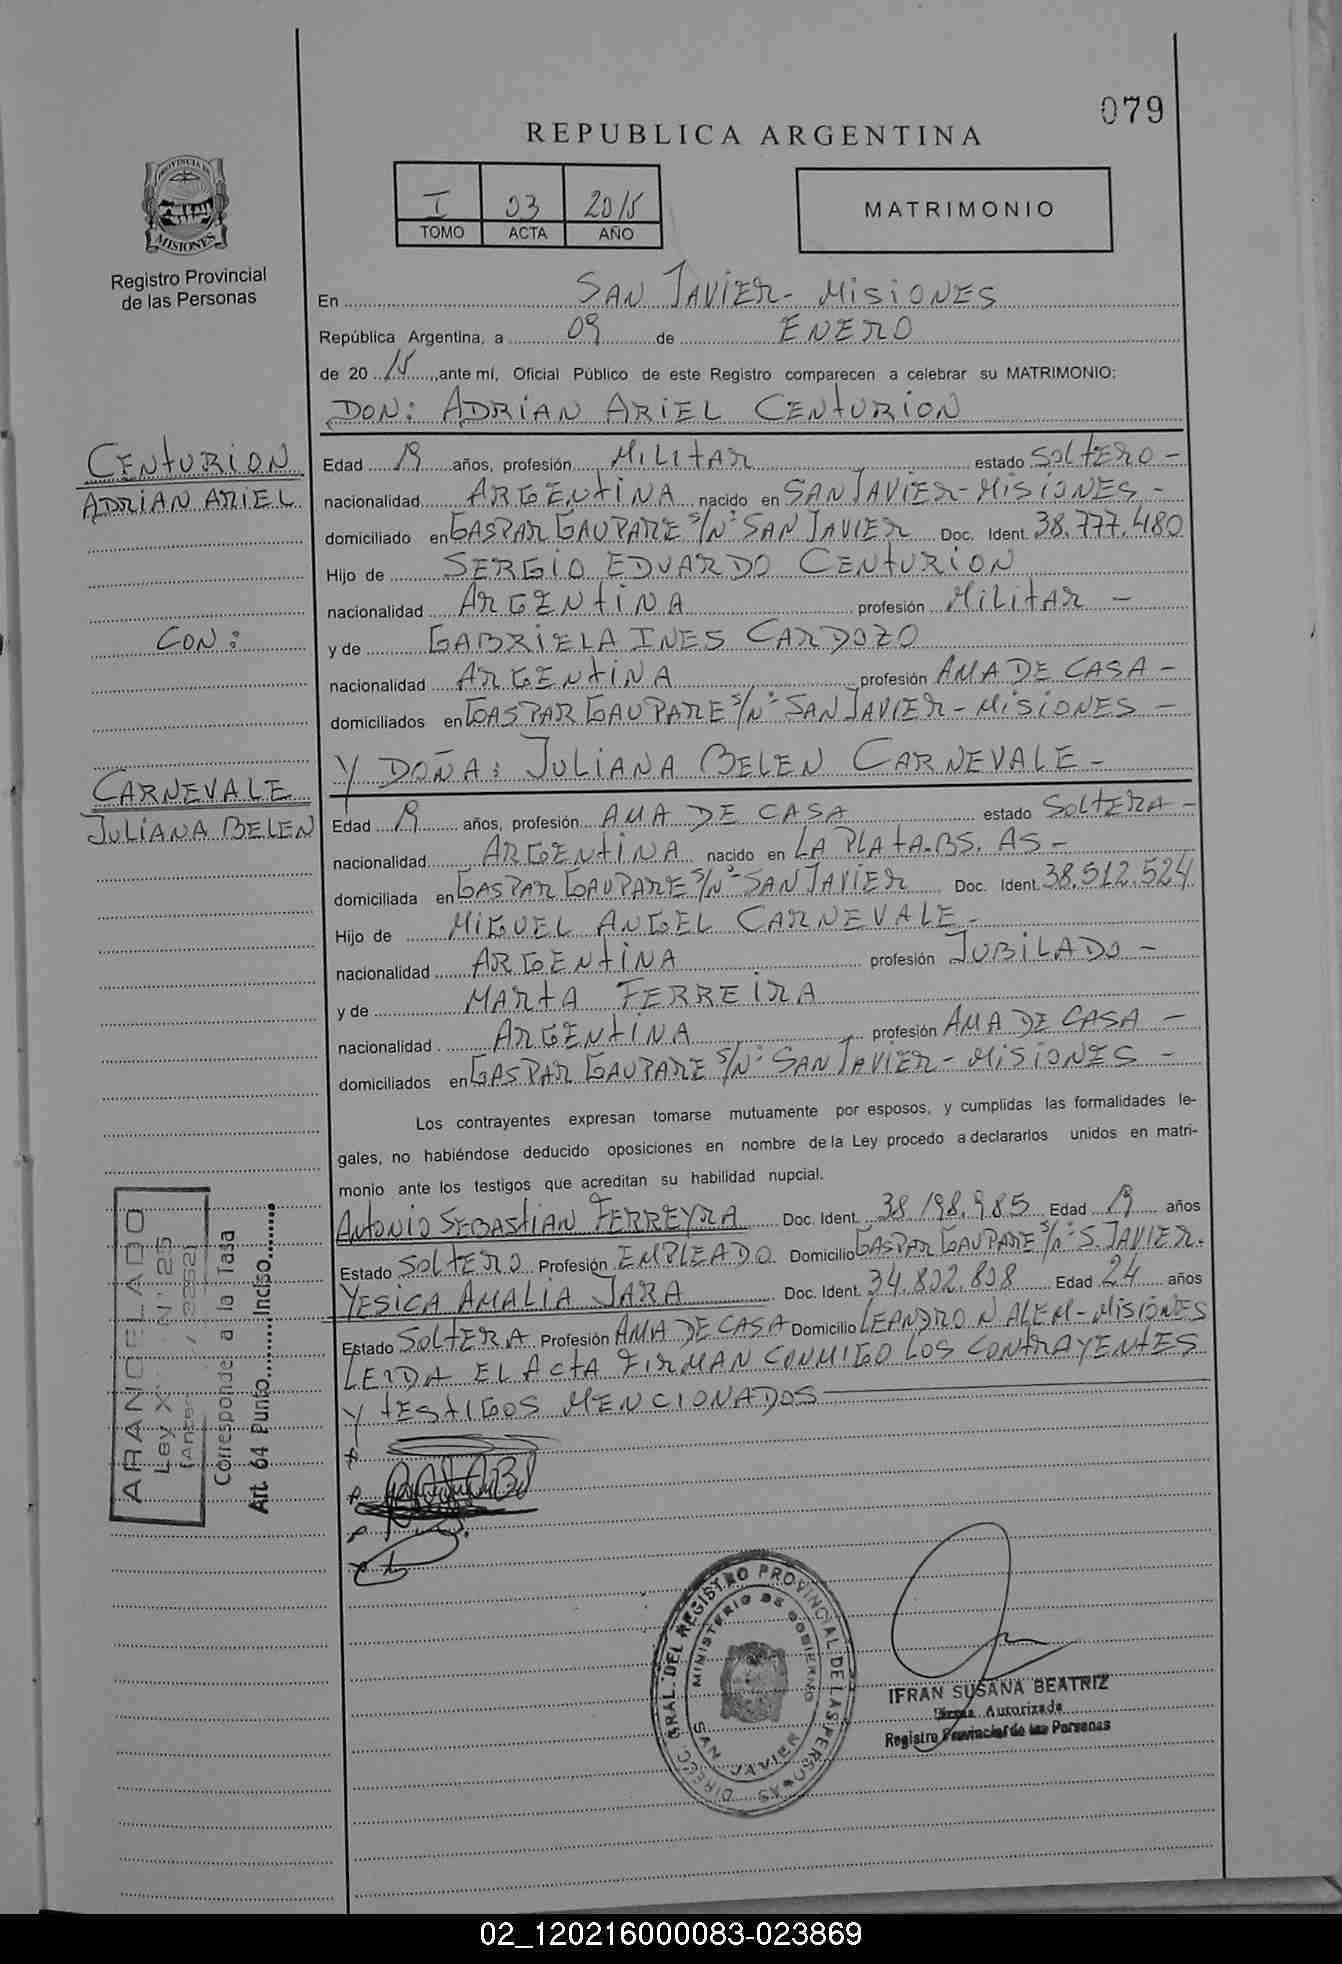 079
REPUBLICA ARGENTINA
I 03 2015
TOMO ACTA AÑO
MATRIMONIO
PROVINCIA DE
MISIONES
Registro Provincial
de las Personas
En SAN JAVIER- MISIONES
República Argentina, a 09 de ENERO
de 20 15, ante mí, Oficial Público de este Registro comparecen a celebrar su MATRIMONIO:
DON: ADRIAN ARIEL CENTURION
CENTURION
ADRIAN ARIEL
Edad 19 años, profesión MILITAR estado SOLTERO -
nacionalidad ARGENTINA nacido en SAN JAVIER-MISIONES -
domiciliado en GASPAR GAUPARE S/Nº SAN JAVIER Doc. Ident. 38.777.480
Hijo de SERGIO EDUARDO CENTURION
nacionalidad ARGENTINA profesión MILITAR -
CON:
y de GABRIELA INES CARDOZO
nacionalidad ARGENTINA profesión AMA DE CASA -
domiciliados en GASPAR GAUPARE S/Nº SAN JAVIER-MISIONES -
Y DOÑA: JULIANA BELEN CARNEVALE -
CARNEVALE
JULIANA BELEN
Edad 19 años, profesión AMA DE CASA estado SOLTERA -
nacionalidad ARGENTINA nacido en LA PLATA-BS. AS -
domiciliada en GASPAR GAUPARE S/Nº SAN JAVIER Doc. Ident. 38.512.524
Hijo de MIGUEL ANGEL CARNEVALE -
nacionalidad ARGENTINA profesión JUBILADO -
y de MARTA FERREIRA
nacionalidad ARGENTINA profesión AMA DE CASA -
domiciliados en GASPAR GAUPARE S/Nº SAN JAVIER-MISIONES -
Los contrayentes expresan tomarse mutuamente por esposos, y cumplidas las formalidades le-
gales, no habiéndose deducido oposiciones en nombre de la Ley procedo a declararlos unidos en matri-
monio ante los testigos que acreditan su habilidad nupcial.
ANTONIO SEBASTIAN FERREYRA Doc. Ident. 38.198.985 Edad 19 años
Estado SOLTERO Profesión EMPLEADO Domicilio GASPAR GAUPARE S/Nº S. JAVIER.
YESICA AMALIA JARA Doc. Ident. 34.802.808 Edad 24 años
Estado SOLTERA Profesión AMA DE CASA Domicilio LEANDRO N ALEM-MISIONES
LEIDA EL ACTA FIRMAN CONMIGO LOS CONTRAYENTES
Y TESTIGOS MENCIONADOS
ARANCELADO
Ley X Nº 25
(Antes 3352)
Corresponde a la Tasa
Art. 64 Punto......Inciso......
DIRECC. GRAL. DEL REGISTRO PROVINCIAL DE LAS PERSONAS
MINISTERIO DE GOBIERNO
SAN JAVIER
IFRAN SUSANA BEATRIZ
Firma Autorizada
Registro Provincial de las Personas
02_120216000083-023869